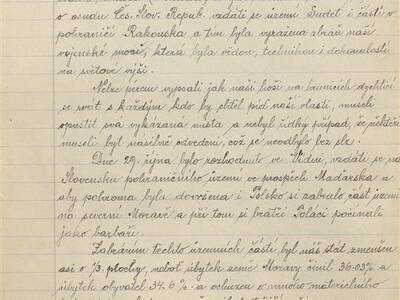 o osudu Čes. Slov. Repub. vzdáti se území Sudet i části v
pohraničí Rakouska a tím byla vyražena zbraň naší
vojenské moci, která byla vědou, technikou i dokonalostí
na světové výši.
Nelze pérem vypsati jak naši hoši na hranicích dychtiví
se rváti s každým kdo by chtěl píď naší vlasti, museli
opustit svá vykázaná místa a nebyl řídký případ, že někteří
museli být násilně odvedeni, což se neodbylo bez slz.
Dne 29. října bylo rozhodnuto ve Vídni, vzdáti se na
Slovensku pohraničního území ve prospěch Maďarska a
aby pohroma byla dovršena i Polsko si zabralo část území
na severní Moravě a při tom si bratři Poláci počínali
jako barbaři.
Zabráním těchto územních částí byl náš stát zmenšen
asi o 1/3 plochy, neboť úbytek země Moravy činil 36.03% a
úbytek obyvatel 34.6 % a ochuzen o mnoho materielního